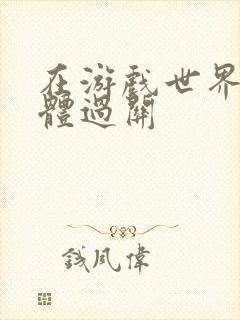 在游戏世界
體過關
錢風偉